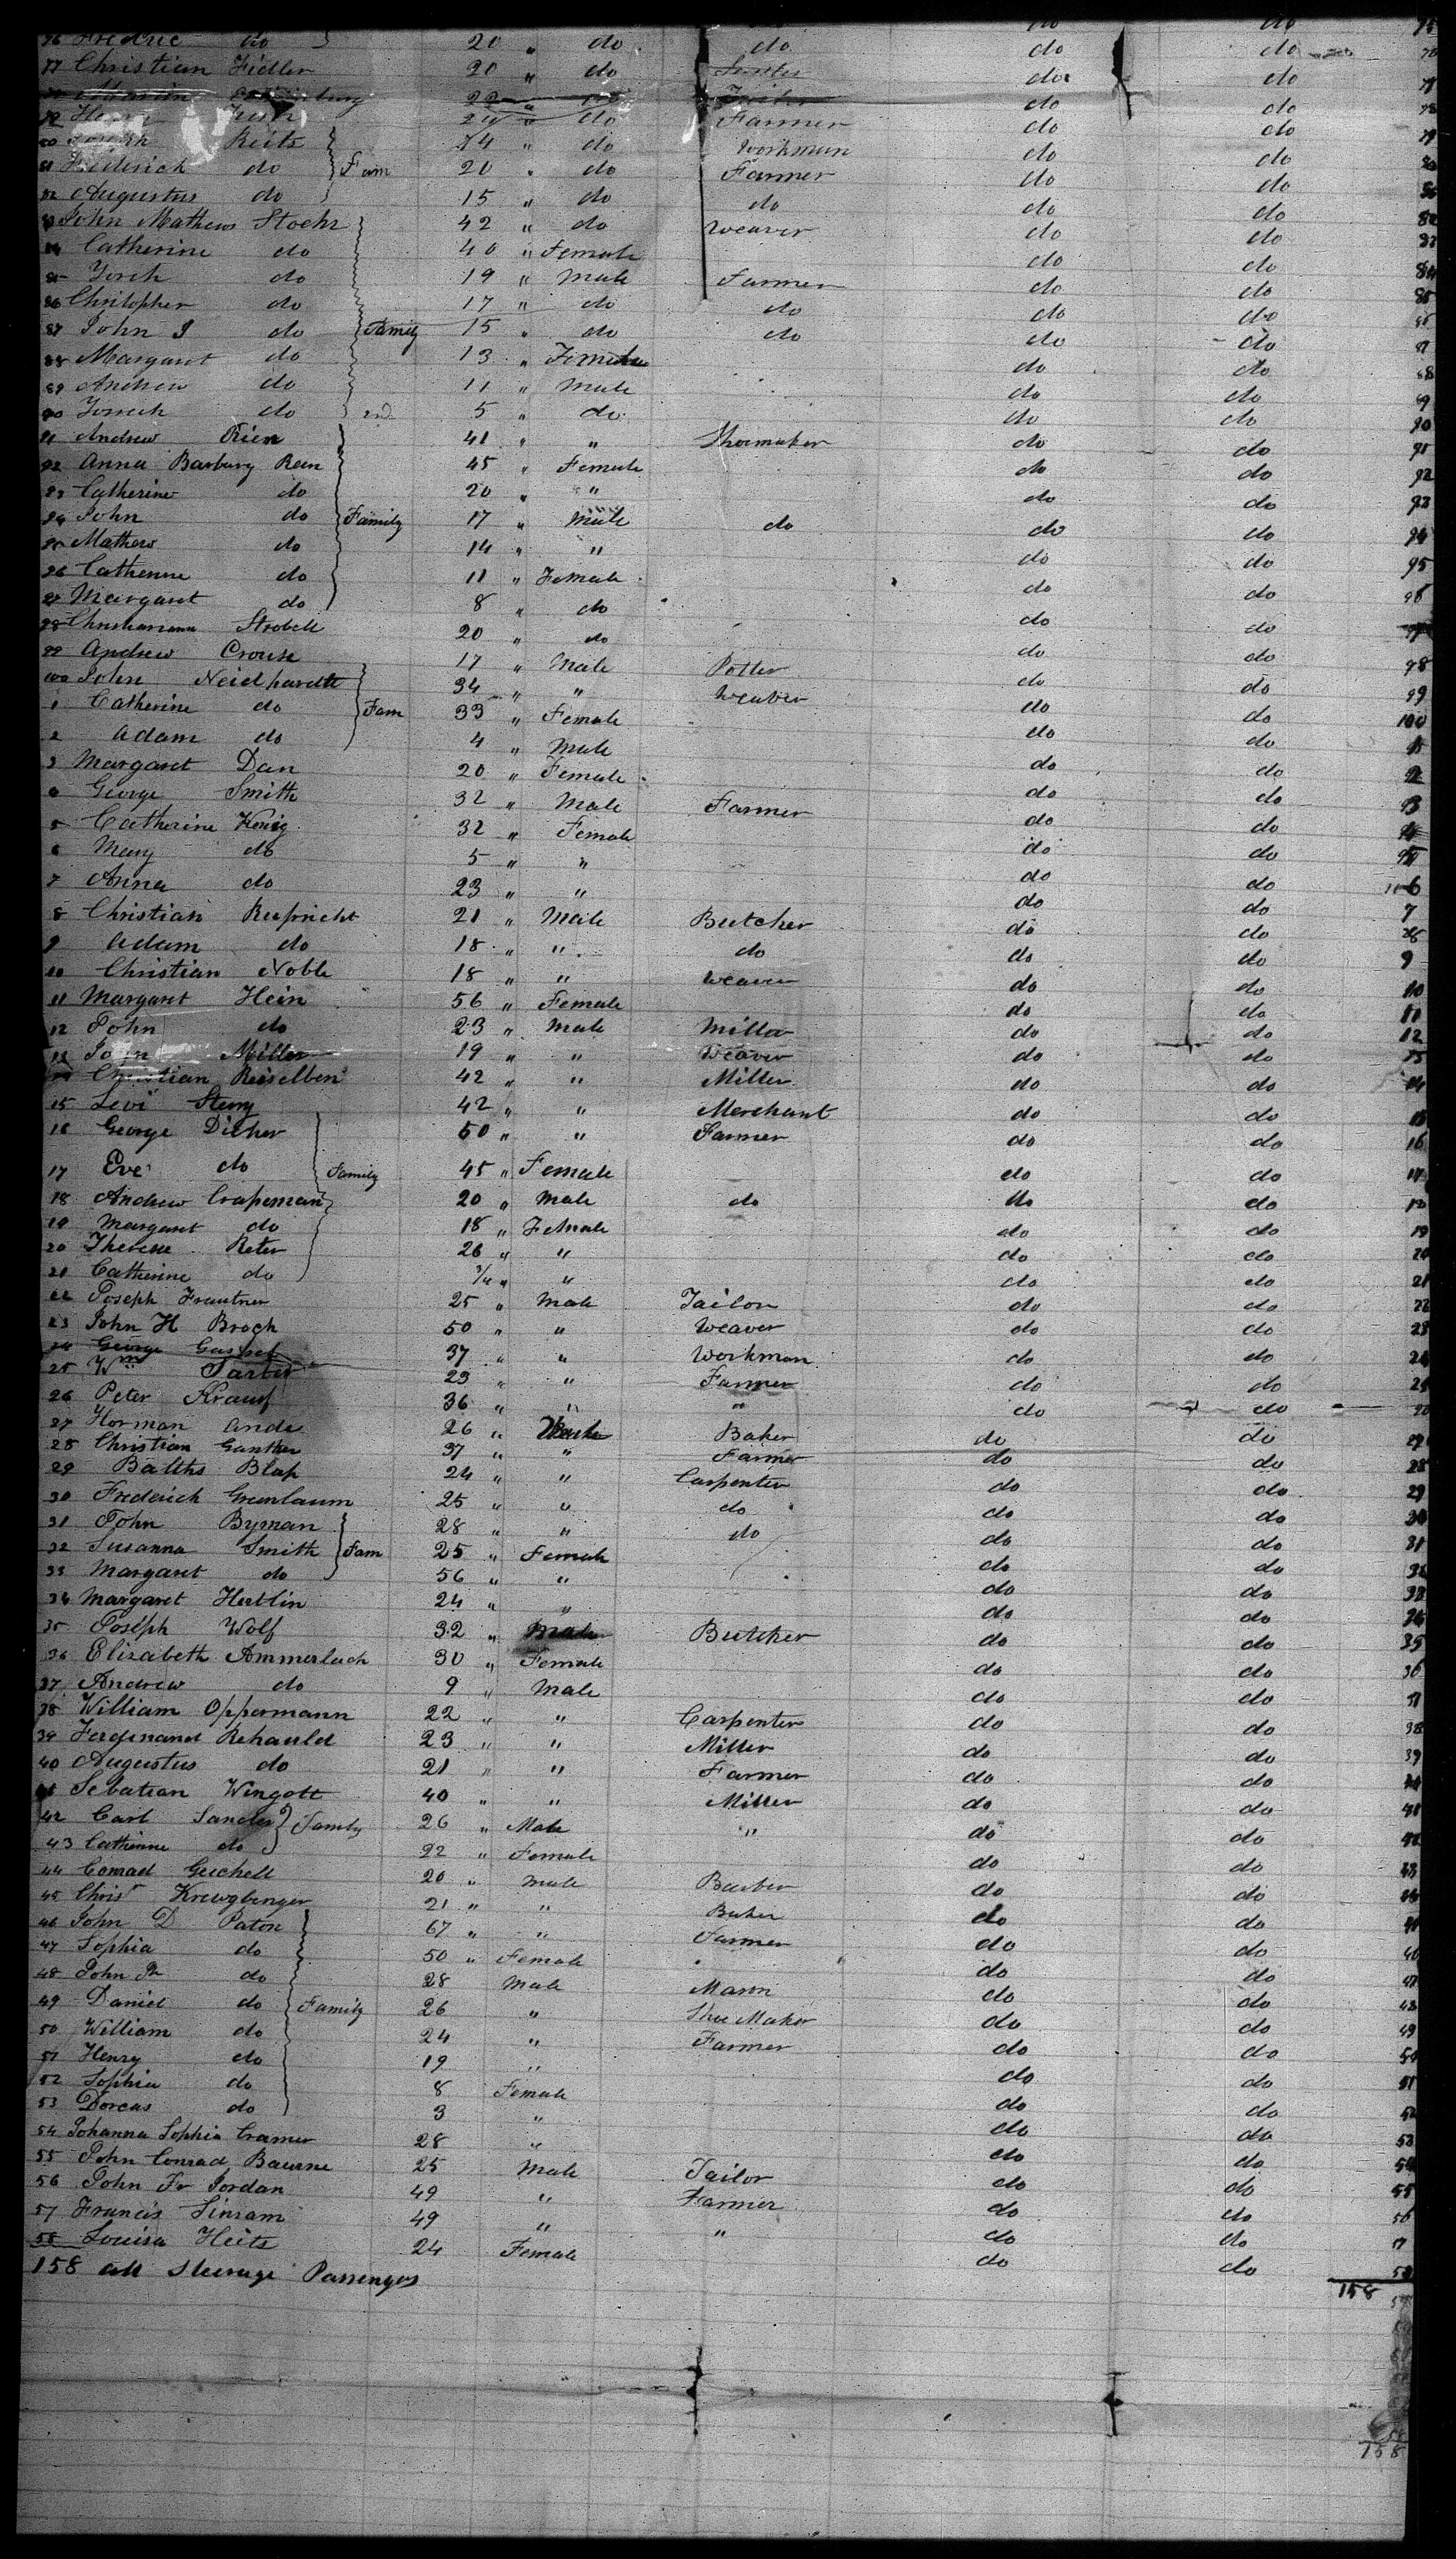 76 Fredric do } 20 " do do do do
77 Christian Fidler 20 " do do do 77
22 do do
79 24 " do Farmer do do 79
80 Reits 74 " do Workman do do 80
81 Frederich do } Fam 20 " do Farmer do do
82 Augustus do 15 " do do do do 82
83 John Mathews Stoehr 42 " do Weaver do do
84 Catherine do 40 " Female do do 84
85 do 19 " Male Farmer do do 85
86 Christopher do 17 " do do do do
87 John J do } Family 15 " do do do do 87
88 Margaret do 13 " Female do do 88
89 Andrew do 11 " Male do do 89
90 do 5 " do do do 90
91 Andrew Rien 41 " " Shoemaker do do 91
92 Anna Barbury Rien 45 " Female do do 92
93 Catherine do 20 " " do do 93
94 John do } Family 17 " Male do do do 94
95 Mathew do 14 " " do do 95
96 Catherine do 11 " Female do do 96
97 Margaret do 8 " do do do
98 Strobell 20 " do do do 98
99 Andrew Crouse 17 " Male Potter do do 99
100 John Neidhardtt 34 " " Weaver do do 100
1 Catherine do } Fam 33 " Female do do 1
2 Adam do 4 " Male do do 2
3 Margaret Dan 20 " Female do do 3
4 George Smith 32 " Male Farmer do do 4
5 Catherine Konig 32 " Female do do
6 Mary do 5 " " do do 6
7 Anna do 23 " " do do 7
8 Christian Ruprieht 21 " Male Butcher do do 8
9 Adam do 18 " " do do do 9
10 Christian Noble 18 " " Weaver do do 10
11 Margaret Hein 56 " Female do do 11
12 John do 23 " Male Miller do do 12
13 John Miller 19 " " Weaver do do 13
14 Christian Reiselben 42 " " Miller do do 14
15 Levi Sterry 42 " " Merchant do do 15
16 George Dicher 50 " " Farmer do do 16
17 Eve do } Family 45 " Female do do 17
18 Andrew Crapeman 20 " Male do do do 18
19 Margaret do 18 " Female do do 19
20 Therese Reter 26 " " do do 20
21 Catherine do " " do do 21
22 Joseph Frautner 25 " Male Tailor do do 22
23 John H Broch 50 " " Weaver do do 23
24 George Gassel 37 " " Workman do do 24
25 Wm Sarter 23 " " Farmer do do 25
26 Peter Krauss 36 " " " do do 26
27 Horman Ande 26 " Male Baker do do 27
28 Christian Gunther 37 " " Farmer do do 28
29 Balths Blass 24 " " Carpenter do do 29
30 Frederich Grenlaum 25 " " do do do 30
31 John Byman 28 " " do do do 31
32 Susanna Smith } Fam 25 " Female do do 32
33 Margaret do 56 " " do do 33
34 Margaret Hertlin 24 " " do do 34
35 Joseph Wolf 32 " Male Butcher do do 35
36 Elizabeth Ammerlach 30 " Female do do 36
37 Andrew do 9 " Male do do 37
38 William Oppermann 22 " " Carpenter do do 38
39 Ferdinand Rehauld 23 " " Miller do do 39
40 Augustus do 21 " " Farmer do do
41 Sebatian Wingott 40 " " Miller do do 41
42 Carl Sander } Family 26 " Male " do do 42
43 Catherine do 22 " Female do do 43
44 Conrad Geichell 20 " Male Barber do do
45 Christ Krewgbenger 21 " " Baker do do
46 John D Paton 67 " " Farmer do do 46
47 Sophia do 50 " Female do do 47
48 John Pr do 28 Male Mason do do 48
49 Daniel do } Family 26 " Shoe Maker do do 49
50 William do 24 " Farmer do do 50
51 Henry do 19 " do do 51
52 Sophia do 8 Female do do 52
53 Dorcas do 3 " do do 53
54 Johanna Sophia Cramer 28 " do do 54
55 John Conrad Baurne 25 Male Tailor do do 55
56 John Fr Jordan 49 " Farmer do do 56
57 Francis Sinram 49 " " do do 57
58 Louisa Heits 24 Female do do 58
158 all Steerage Passengers
158
158